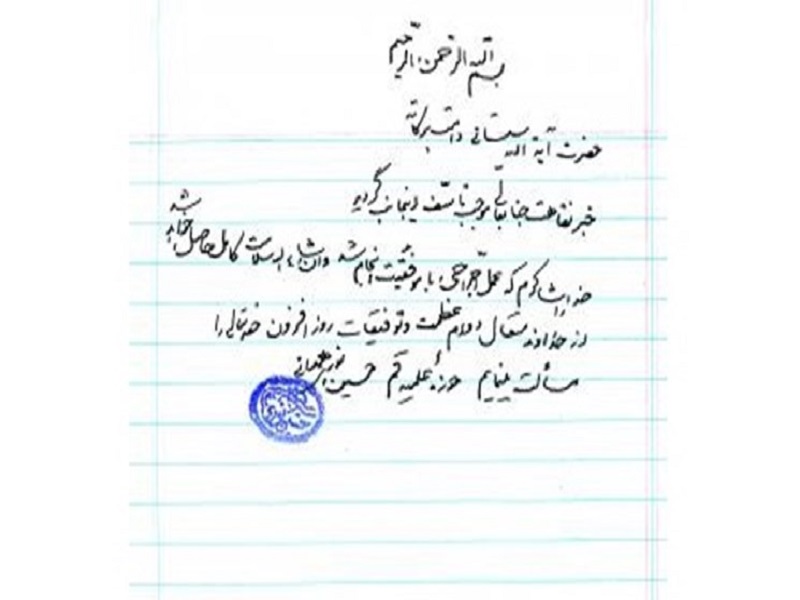 بسم الله الرحمن الرحیم
حضرت آیة الله سیستانی دامت برکاته
خبر نقاهت جنابعالی موجب تأسف اینجانب گردید
خدا را شاکرم که عمل جراحی با موفقیت انجام شد و ان شاء الله سلامت کامل حاصل خواهد شد
از خداوند متعال دوام عظمت و توفیقات روز افزون حضرتعالی را
مسألت مینمایم حوزه علمیه قم حسین نوری همدانی